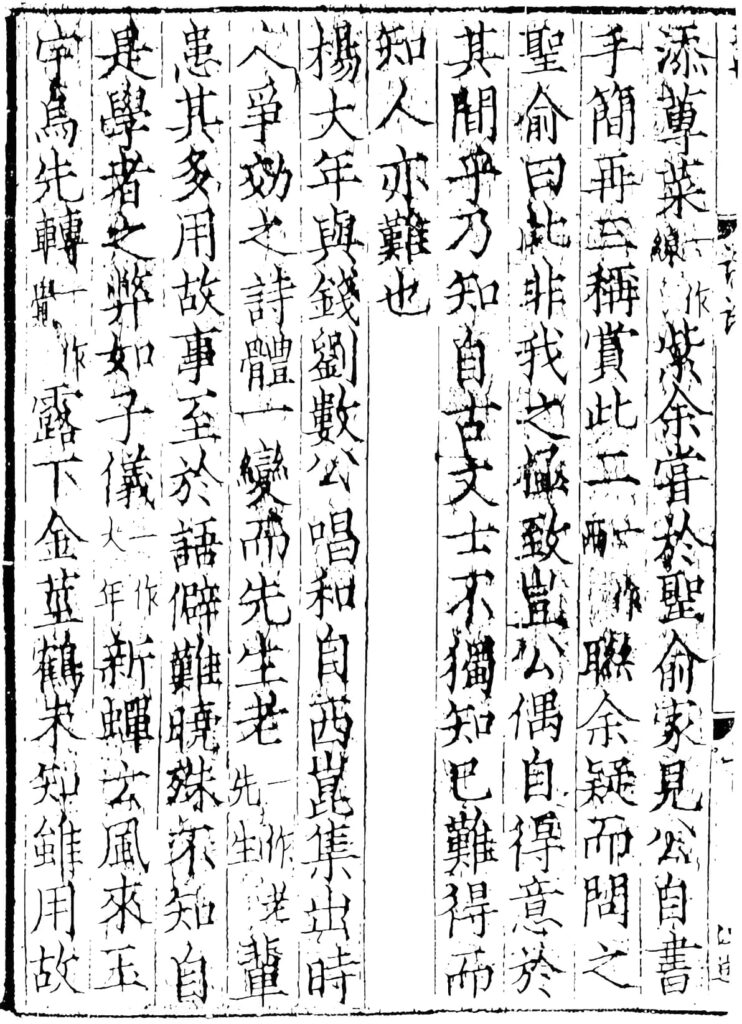 添蓴菜一作線紫余嘗於聖俞家見公自書
手簡再三稱賞此二一作兩聯余疑而問之
聖俞曰此非我之極致豈公偶自得意於
其間乎乃知自古文士不獨知巳難得而
知人亦難也
楊大年與錢劉數公唱和自西崑集出時
人爭效之詩體一變而先生老一作老先生輩
患其多用故事至於語僻難曉殊不知自
是學者之弊如子儀一作大年新蟬云風來玉
宇烏先轉一作覺露下金莖鶴未知雖用故